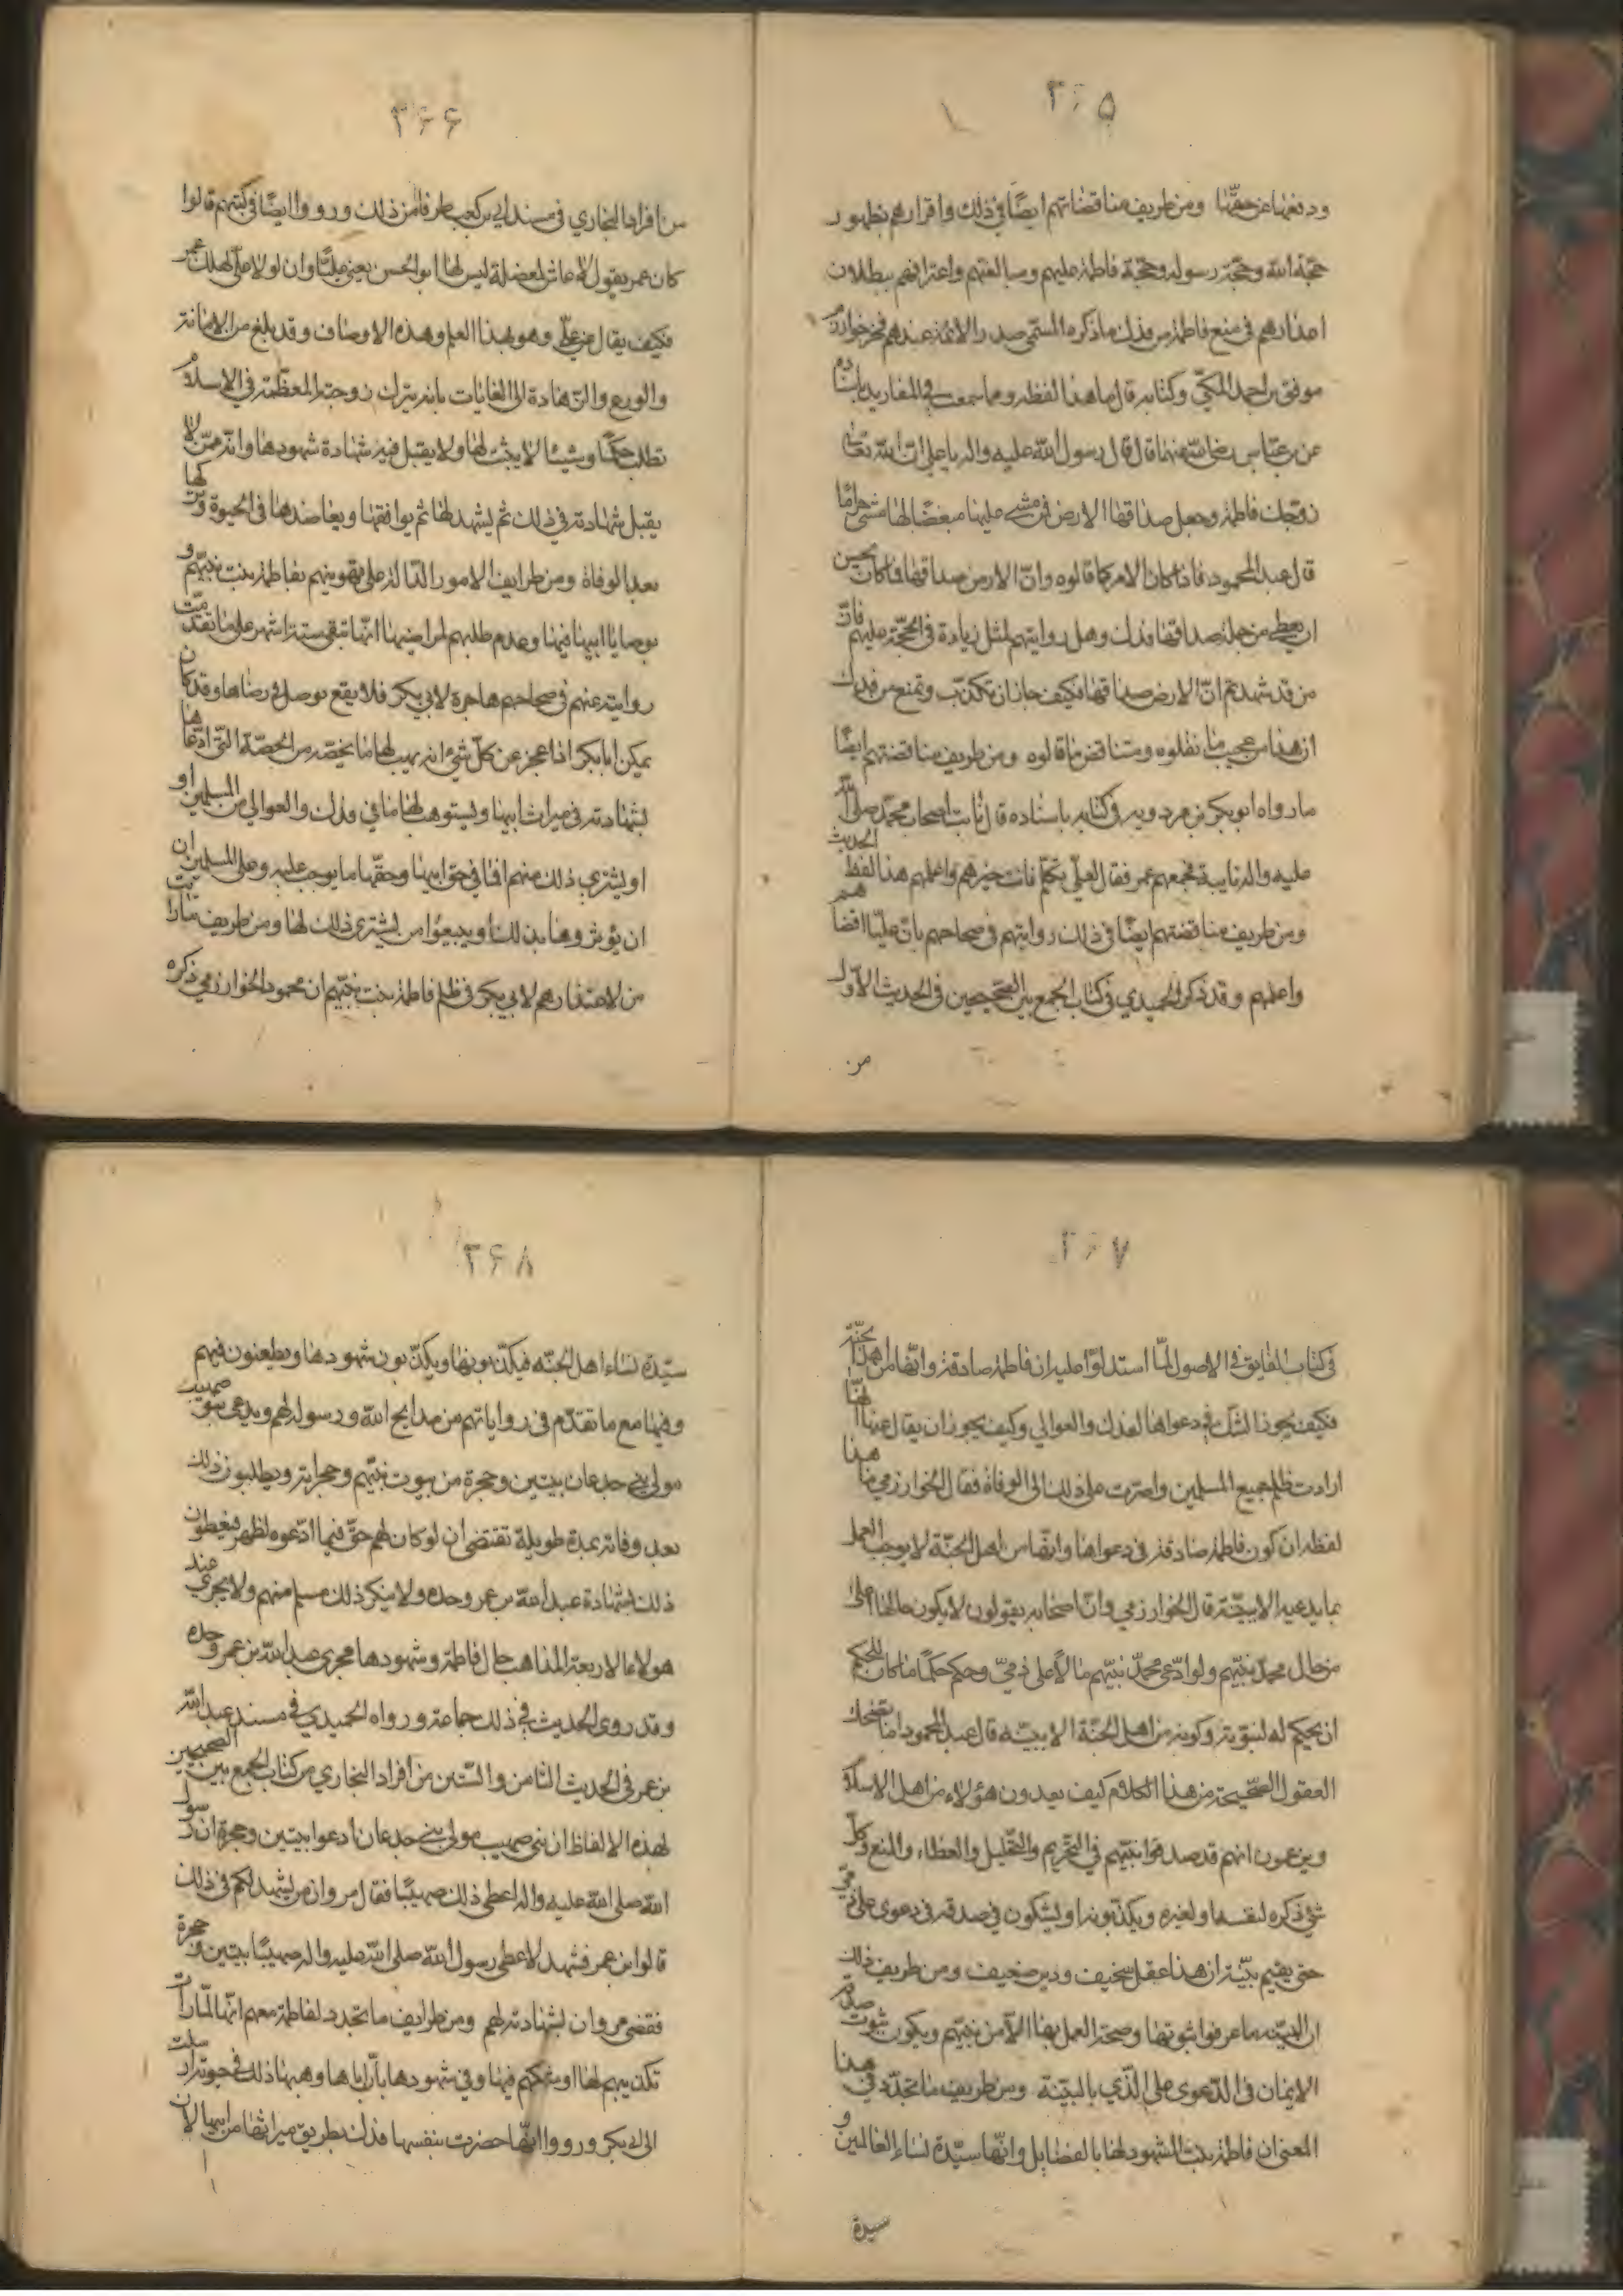 ٣۶۵
ودفعها عن حقها ومن طريف مناقضاتهم ايضًا في ذلك واقرارهم بظهور
حجة الله وحجة رسوله وحجة فاطمة عليهم ومبالغتهم واعترافهم ببطلان
اعذارهم في منع فاطمة من فدك ما ذكره المسمى صدر الائمة عندهم فخر خوارزم
موفق بن احمد المكي في كتابه قال ما هذا لفظه ومما سمعت في المفاريد باسناده
عن بن عباس رضي الله عنهما قال قال رسول الله عليه واله يا علي ان الله تعالى
زوجك فاطمة وجعل صداقها الارض فمن مشى عليها مبغضًا لها مشى حرامًا
قال عبد المحمود فاذا كان الامر كما قالوه وانّ الارض صداقها فما كان يحسن
ان يعطى من جملة صداقها فدك وهل روايتهم لمثل زيادة في الحجة عليهم فانّ
من قد شهدتم انّ الارض صداقها فكيف جاز ان تكذب وتمنع من فدك
ان هذا من عجيب ما نقلوه ومتناقض ما قالوه ومن طريف مناقضتهم ايضًا
ما رواه ابو بكر بن مردويه في كتابه باسناده قال نابت اصحاب محمد صلى الله
عليه واله نايبة فجمعهم عمر فقال لعلي تكلم فانت خيرهم واعلمهم هذا لفظ الحديث
ومن طريف مناقضتهم ايضًا في ذلك روايتهم في صحاحهم بان عليًا اقضاهم
واعلمهم وقد ذكر الحميدي في كتاب الجمع بين الصحيحين في الحديث الاول
من
٣۶۶
من افراد البخاري في مسند ابي بن كعب طرفًا من ذلك ورووا ايضًا في كتبهم قالوا
كان عمر يقول لا عاش لمعضلة ليس لها ابو الحسن يعني عليًّا وان لولا علي لهلك عمر
فكيف يقال عن علي وهو بهذا العلم وهذه الاوصاف وقد بلغ من الامانة
والورع والزهادة الى الغايات بانه يترك زوجته المعظمة في الاسلام
تطلب حكمًا وشيئًا لا يثبت لها ولا يقبل فيه شهادة شهودها وانه ممن لا
يقبل شهادته في ذلك ثم يشهد لها ثم يوافقها ويعاضدها في الحيوة ويزكيها
بعد الوفاة ومن طرايف الامور الدالة على تهوينهم بفاطمة بنت نبيهم و
بوصايا ابيها فيها وعدم طلبهم لمراضيها انها تبقى ستة اشهر على ما تقدمت
روايته عنهم في صحاحهم هاجرة لابي بكر فلا يقع توصل في رضاها وقد كان
يمكن ابا بكر اذا عجز عن كل شئ انه يهب لها ما يخصه من الحصة التي ادعاها
بشهادته في ميراث ابيها ويستوهب لها ما في فدك والعوالي من المسلمين او
او يشتري ذلك منهم اما في حق ابيها وحقها ما يوجب عليه وعلى المسلمين ان
ان يؤثروها بذلك او يبيعوا من يشتري ذلك لها ومن طريف ما رايت
من الاعتذارهم لابي بكر في ظلم فاطمة بنت نبيهم ان محمود الخوارزمي ذكره
٣۶٧
في كتاب الفايق في الاصول لما استدلوا عليه ان فاطمة صادقة وانها من اهل الجنة
فكيف يجوز الشك في دعواها لفدك والعوالي وكيف يجوز ان يقال عنها انها
ارادت ظلم جميع المسلمين واصرت على ذلك الى الوفاة فقال الخوارزمي ما هذا
لفظه ان كون فاطمة صادقة في دعواها وانها من اهل الجنة لا يوجب العمل
بما يدعيه الا ببينة قال الخوارزمي وانّ اصحابه يقولون لا يكون حالها اعلى
من حال محمد نبيهم ولو ادعى محمد نبيهم مالاً على ذميّ وحكم حكمًا ما كان للحكم
ان يحكم له لنبوته وكونه من اهل الجنة الا ببينة قال عبد المحمود اما تضحك
العقول الصحيحة من هذا الكلام كيف يعدون هؤلاء من اهل الاسلام
ويزعمون انهم قد صدقوا نبيهم في التحريم والتحليل والعطاء والمنع وكل
شئ ذكره لنفسه او لغيره ويكذبونه او يشكون في صدقه في دعوى على ذمي
حتى يقيم بينة ان هذا عقل سخيف ودين ضعيف ومن طريف ذلك
ان البينة ما عرفوا ثبوتها وصحة العمل بها الا من نبيهم ويكون ثبوت صدقه
الايمان في الدعوى على الذي بالبينة ومن طريف ما تجدد في هذا
المعنى ان فاطمة بنت المشهود لها بالفضايل وانها سيدة نساء العالمين و
سيدة
٣۶٨
سيدة نساء اهل الجنة فيكذبونها ويكذبون شهودها ويطعنون فيهم
وفيها مع ما تقدم في رواياتهم من مدايح الله ورسوله لهم ويدعى بنو صهيب
مولى بني جدعان بيتين وحجرة من بيوت نبيهم وحجراته ويطلبون ذلك
بعد وفاته بمدة طويلة تقتضي ان لو كان لهم حق فيما ادعوه لظهر فيعطون
ذلك بشهادة عبد الله بن عمر وحده ولا ينكر ذلك مسلم منهم ولا يجري عند
هولاء الاربعة المذاهب حال فاطمة وشهودها مجرى عبد الله بن عمر وحده
وقد روى الحديث في ذلك جماعة ورواه الحميدي في مسند عبد الله
بن عمر في الحديث الثامن والستين من افراد البخاري من كتاب الجمع بين الصحيحين
لهذه الالفاظ ان بني صهيب مولى بني جدعان ادعوا بيتين وحجرة ان رسول
الله صلى الله عليه واله اعطى ذلك صهيبًا فقال مروان من يشهد لكم في ذلك
قالوا بن عمر فشهد لاعطى رسول الله صلى الله عليه واله صهيبًا بيتين وحجرة
فقضى مروان بشهادته لهم ومن طرايف ما تجدد لفاطمة معهم انها لما رات
تكذيبهم لها او شكهم فيها وفي شهودها بان اباها وهبها ذلك في حيوته ارسلت
الى ابي بكر ورووا انها حضرت بنفسها فدك بطريق ميراثها من ابيها لان